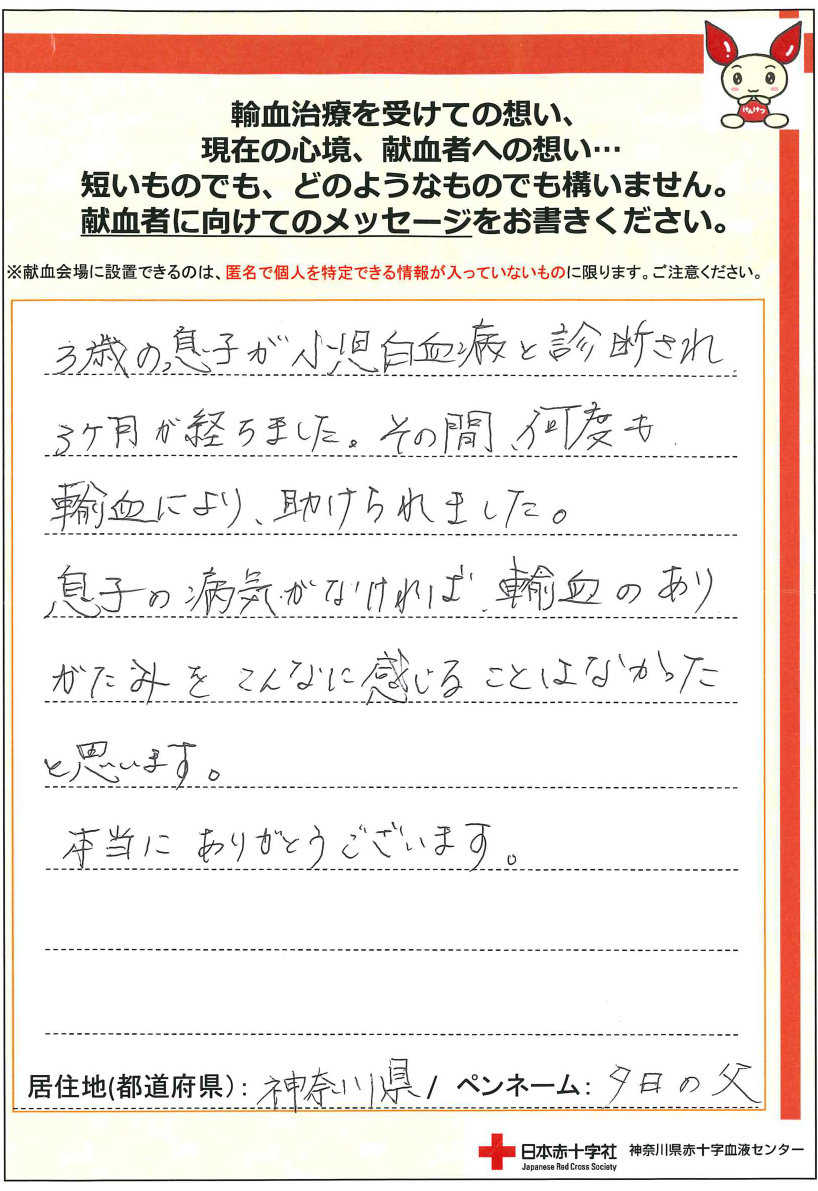 けんけつ
輸血治療を受けての想い、
現在の心境、献血者への想い…
短いものでも、どのようなものでも構いません。
献血者に向けてのメッセージをお書きください。
※献血会場に設置できるのは、匿名で個人を特定できる情報が入っていないものに限ります。ご注意ください。
3歳の息子が小児白血病と診断され
3ヶ月が経ちました。その間、何度も
輸血により、助けられました。
息子の病気がなければ、輸血のあり
がたみをこんなに感じることはなかった
と思います。
本当にありがとうございます。
居住地(都道府県): 神奈川県 / ペンネーム: 夕日の父
日本赤十字社 神奈川県赤十字血液センター
Japanese Red Cross Society